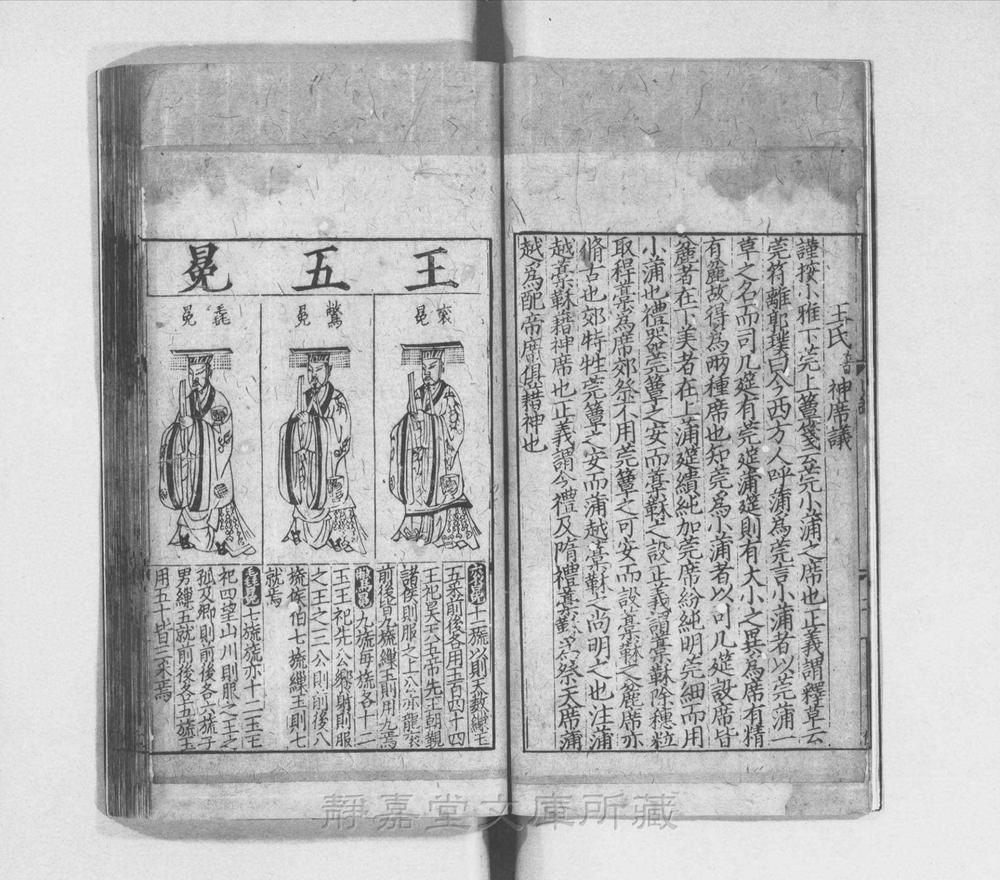 王氏 神席議
謹按小雅下莞上簟箋云莞小蒲之席也正義謂釋草云
莞苻離郭璞曰今西方人呼蒲為莞言小蒲者以莞蒲一
草之名而司几筵有莞筵蒲筵則有大小之異為席有精
有麄故得為兩種席也知莞為小蒲者以司几筵設席皆
麄者在下美者在上蒲筵繢純加莞席紛純明莞細而用
小蒲也禮器莞簟之安而藁鞂之設正義謂藁鞂除穗粒
取稈藁為席郊祭不用莞簟之可安而設藁鞂之麄席亦
脩古也郊特牲莞簟之安而蒲越藁鞂之尚明之也注蒲
越藁鞂藉神席也正義謂今禮及隋禮藁鞂為祭天席蒲
越為配帝席俱藉神也
王五冕
袞冕
鷩冕
毳冕
袞冕十二旒以則天數繅玉
五采前後各用玉百四十四
王祀昊天五帝先王朝覲
諸侯則服之上公亦龍袞
前後皆九旒繅玉則用九焉
鷩冕九旒每旒各十二
玉王祀先公饗射則服
之王之三公則前後八
旒侯伯七旒繅玉則七
就焉
毳冕七旒旒亦十二玉王
祀四望山川則服之王之
孤及卿則前後各六旒子
男繅五就前後各五旒玉
用五十皆三采焉
静嘉堂文庫所藏